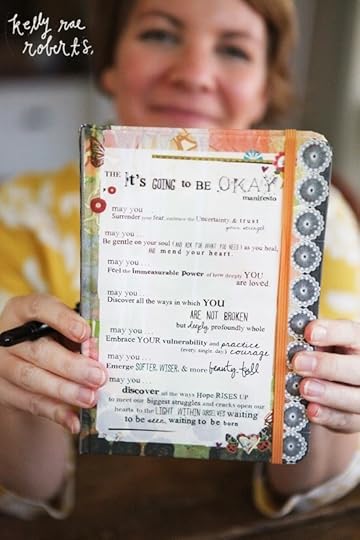 kelly rae
roberts.
THE it's GOING to BE OKAY
manifesto
may you . . .
Surrender your fear, embrace the Uncertainty & trust
your strength.
may you . . .
Be gentle on your soul (AND ASK FOR WHAT YOU NEED) as you heal,
AND mend your heart.
may you . . .
Feel the immeasurable power of how deeply YOU
are loved.
may you . . .
Discover all the ways in which YOU
ARE NOT BROKEN
but deeply, profoundly whole
may you . . .
Embrace YOUR vulnerability and practice
(every, single, day) courage
may you . . .
Emerge SOFTER, WISER, & more beauty-full
may you . . .
discover all the ways Hope RISES UP
to meet our biggest struggles and cracks open our
hearts to the LIGHT WITHIN OURSELVES waiting
to be seen, waiting to be born